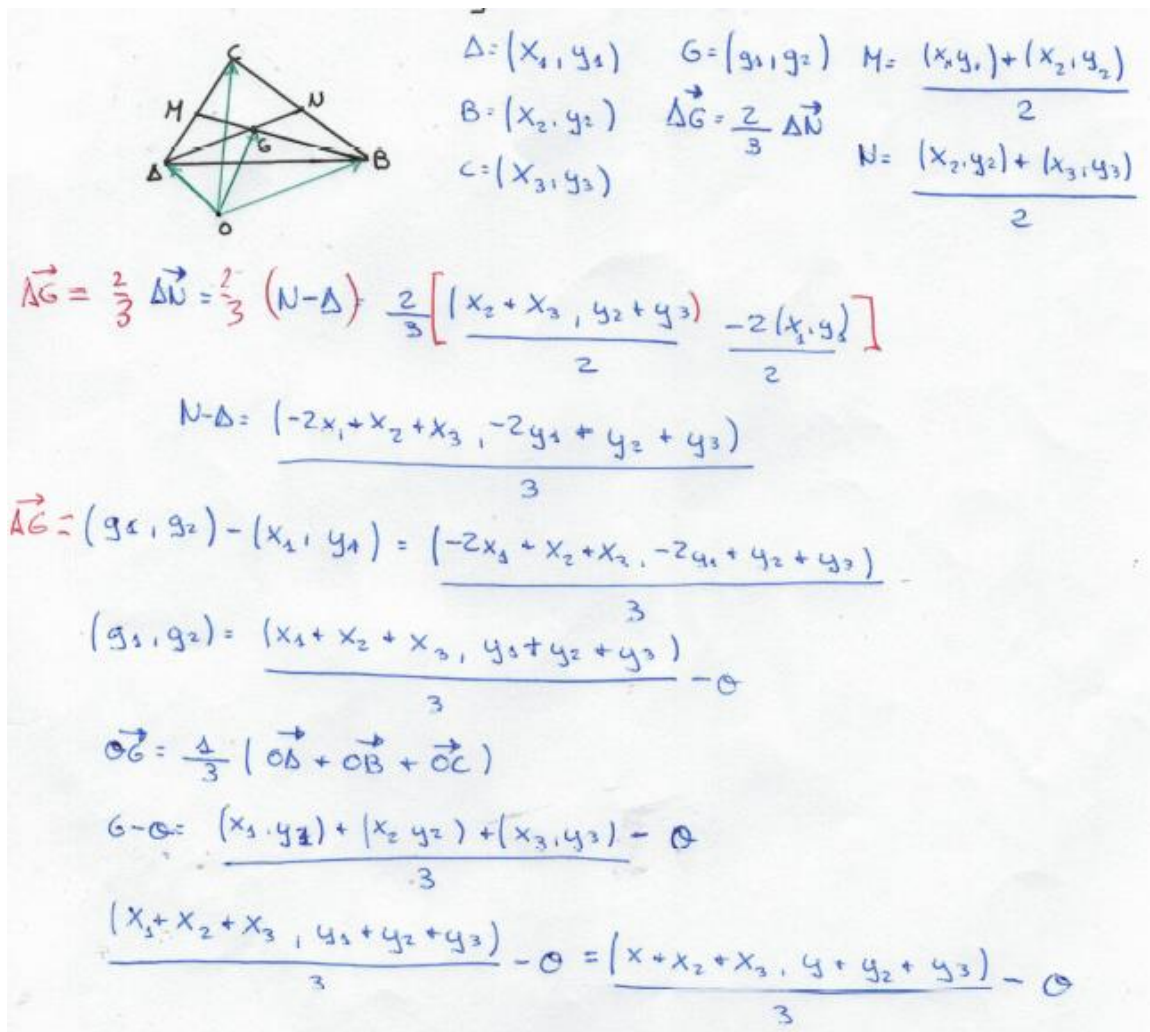 C
M
N
G
A
B
O
A=(x₁, y₁) G=(g₁, g₂) M= \frac{(x, y₁)+(x₂, y₂)}{2}
B=(x₂, y₂) \vec{AG} = \frac{2}{3} \vec{AN}
C=(x₃, y₃) N= \frac{(x₂, y₂)+(x₃, y₃)}{2}
\vec{AG} = \frac{2}{3} \vec{AN} = \frac{2}{3} (N-A) \frac{2}{3} [ \frac{(x₂+x₃, y₂+y₃)}{2} \frac{-2(x₁, y₁)}{2} ]
N-A= \frac{(-2x₁+x₂+x₃, -2y₁+y₂+y₃)}{3}
\vec{AG} = (g₁, g₂) - (x₁, y₁) = \frac{(-2x₁+x₂+x₃, -2y₁+y₂+y₃)}{3}
(g₁, g₂) = \frac{(x₁+x₂+x₃, y₁+y₂+y₃)}{3} - O
\vec{OG} = \frac{1}{3} (\vec{OA} + \vec{OB} + \vec{OC})
G-O= \frac{(x₁, y₁)+(x₂ y₂)+(x₃, y₃)}{3} - O
\frac{(x₁+x₂+x₃, y₁+y₂+y₃)}{3} - O = \frac{(x+x₂+x₃, y+y₂+y₃)}{3} - O